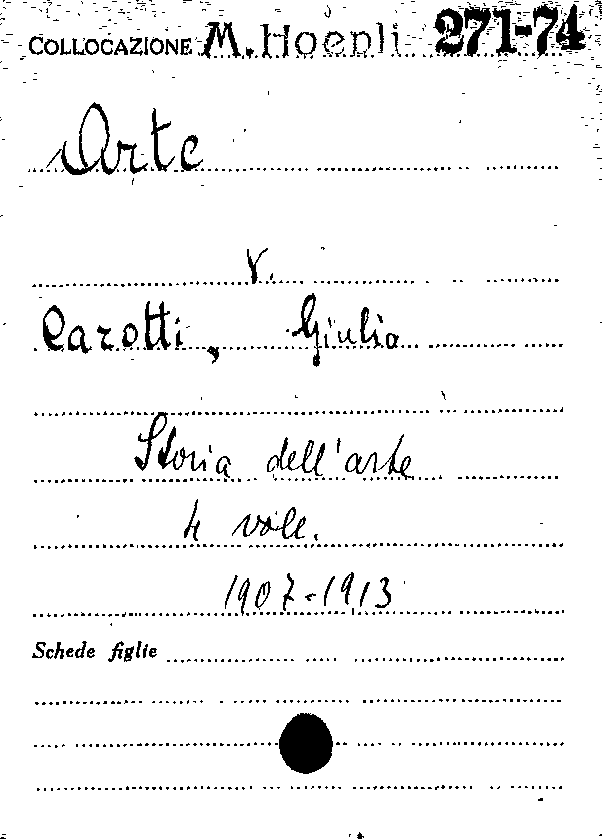 COLLOCAZIONE M. Hoepli 271-74
Arte
v.
Carotti, Giulio
Storia dell'arte
4 voll.
1907-1913
Schede figlie